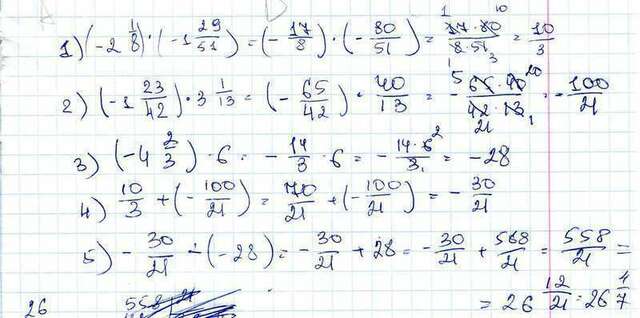 1) (-2 1/8) · (-1 29/51) = (- 17/8) · (- 80/51) = 17·80/8·51 = 10/3
2) (-1 23/42) · 3 1/13 = (- 65/42) · 40/13 = - 65·40/42·13 = - 100/21
3) (-4 2/3) · 6 = - 14/3 · 6 = - 14·6/3 = -28
4) 10/3 + (- 100/21) = 70/21 + (- 100/21) = - 30/21
5) - 30/21 - (-28) = - 30/21 + 28 = - 30/21 + 588/21 = 558/21 =
= 26 12/21 = 26 4/7
26 558 21